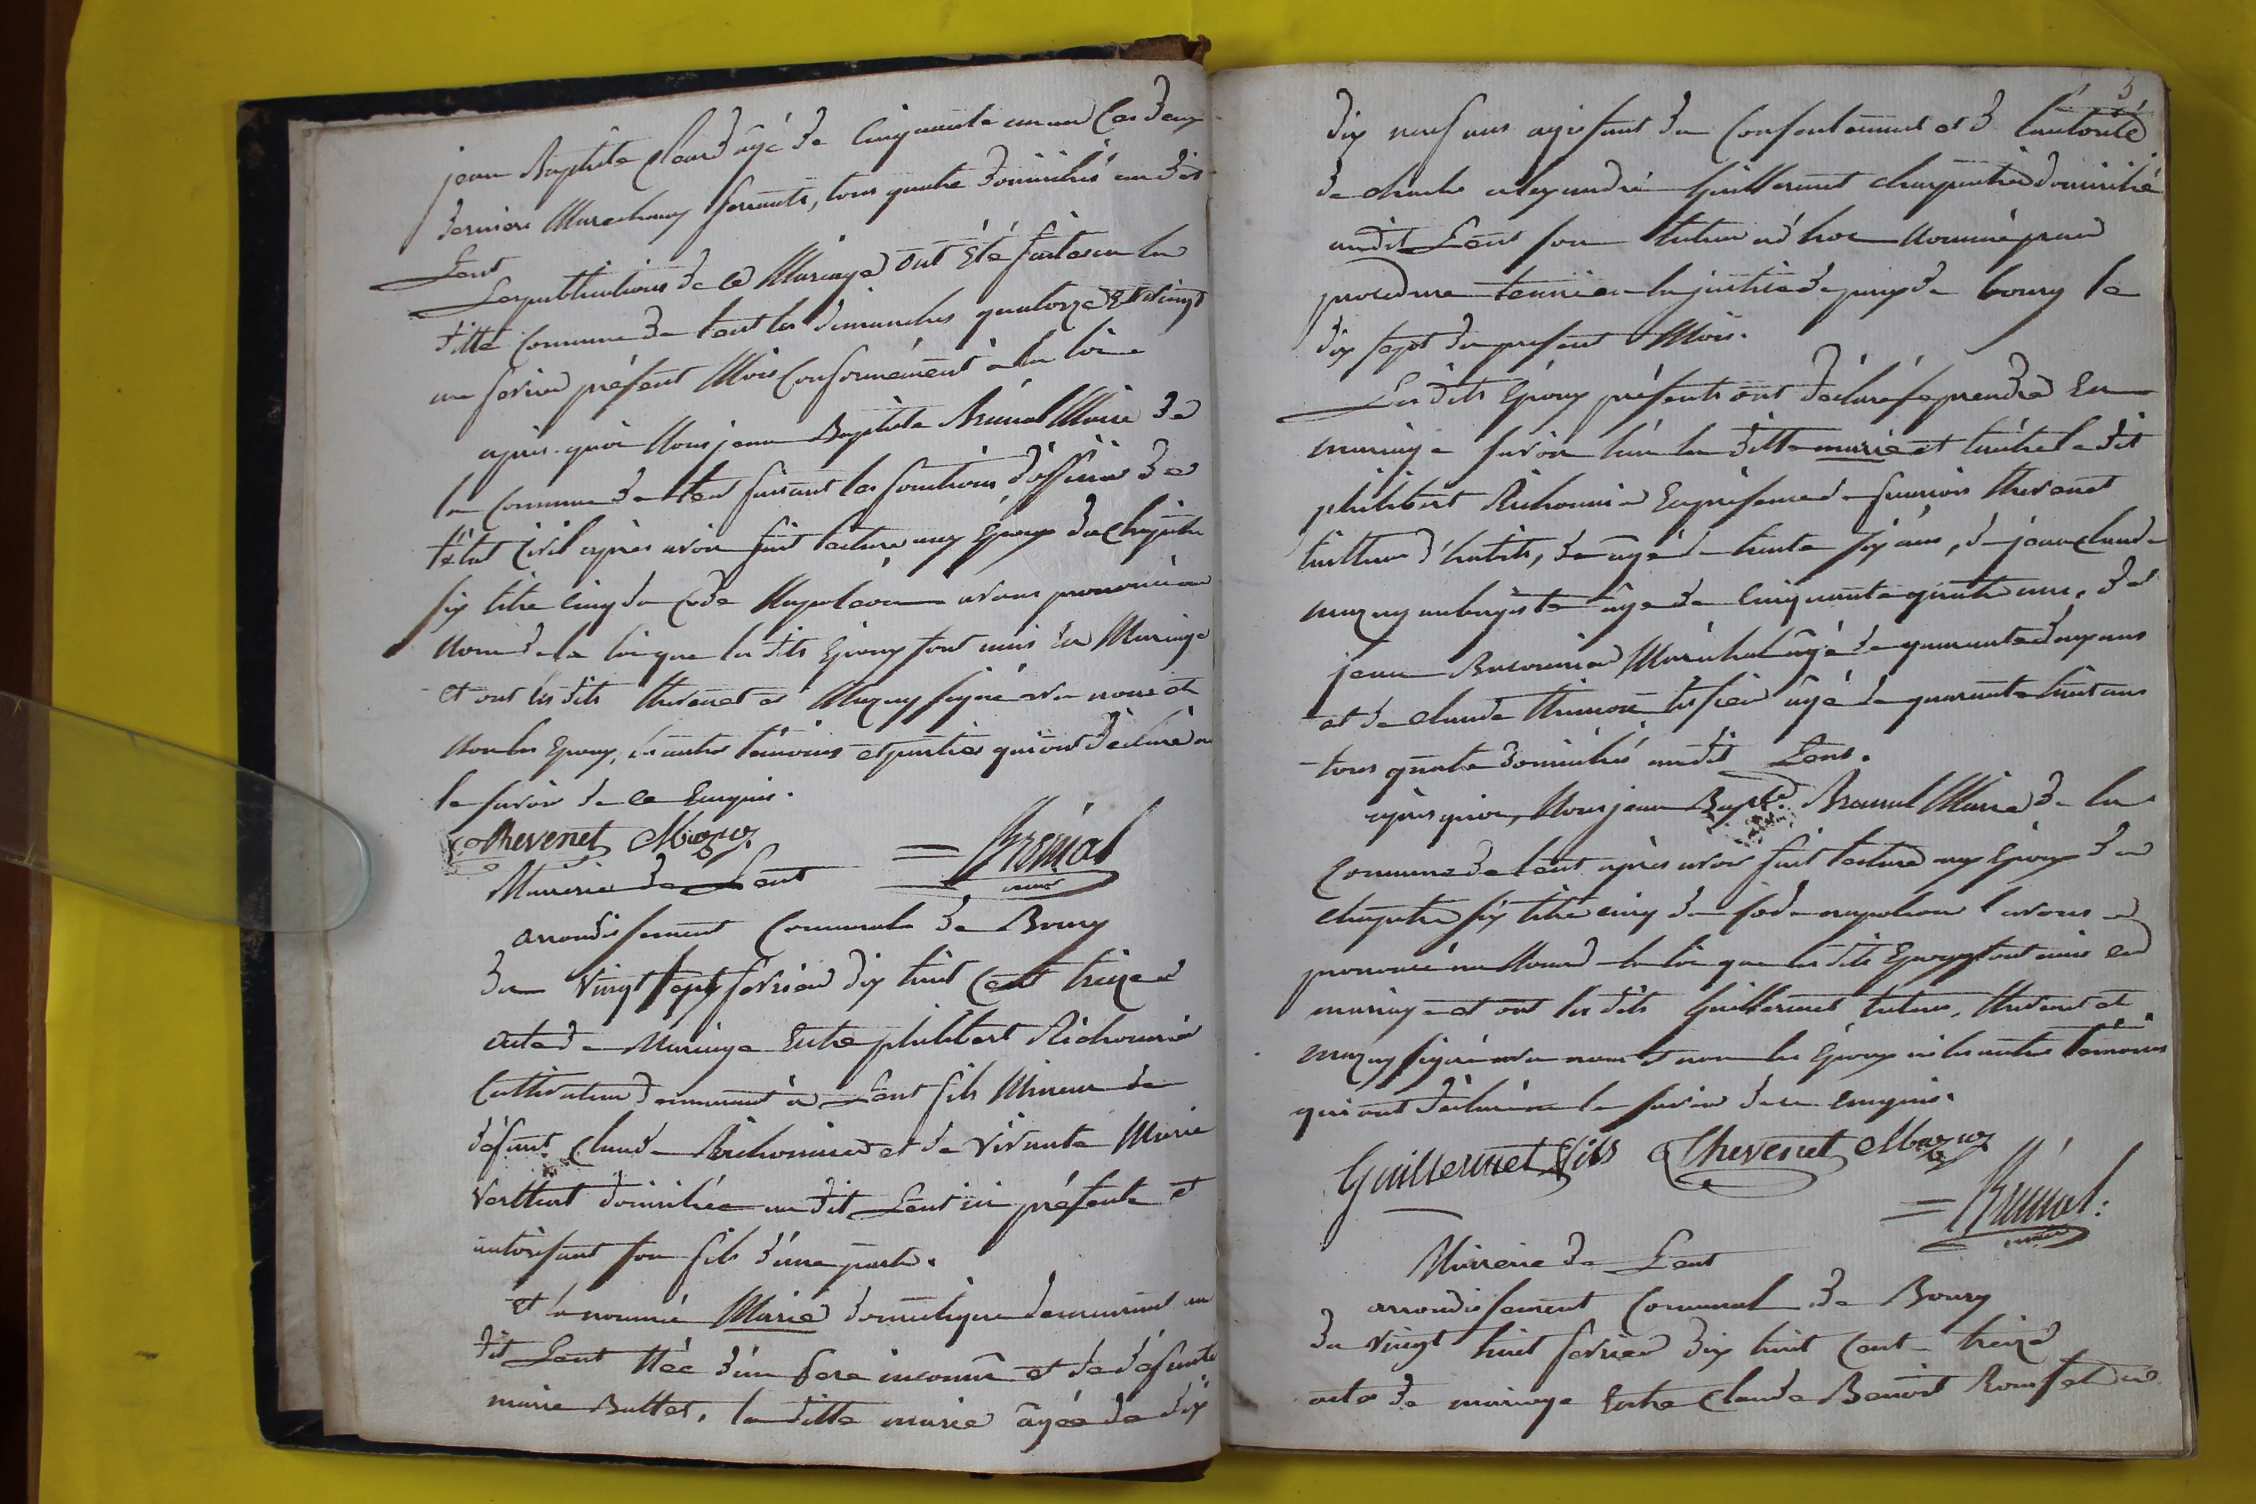 jean Baptiste âgé de Cinquante un an Ces deux
derniers Marechaux ferrants, tous quatre domiciliés au dit
Lent
Les publications de ce Mariage ont été faites en la
ditte Commune de Lent les dimanches quatorze & vingt
un fevrier présent Mois Conformément à la loi
après quoi Nous jean Baptiste Brunal Maire de
la Commune de Lent faisant les fonctions d'officier de
l'état Civil après avoir fait lecture aux Epoux du Chapitre
six titre cinq du Code Napoléon avons prononcé au
Nom de la loi que les dits Epoux sont unis en Mariage
et ont les dits thevenet et Mazuy signé avec nous et
Non les Epoux, les autres témoins et parties qui ont déclaré ne
le savoir de ce Enquis.
Thevenet Mazuy Brunal
maire
Mairerie de Lent
arrondissement Communal de Bourg
du vingt sept fevrier dix huit Cent treize
acte de Mariage Entre philibert Richonnier
Cultivateur demeurant à Lent fils Mineur de
défunt Claude Richonnier et de vivante Marie
domiciliée au dit Lent ici présente et
autorisant son fils d'une part.
Et la nommée Marie domestique demeurant au
dit Lent Née d'un père inconnu et de défunte
marie Buttet, la ditte marie âgée de dix
5
dix neuf ans agissant du Consentement et de l'autorité
de charle alexandre Guillermet charpentier domicilié
audit Lent son tuteur ad'hoc Nommé par
procedure tenue en la justice de paix de bourg le
dix sept du present Mois.
Les dits Epoux présents ont déclaré se prendre En
mariage savoir lui la ditte marie et Elle le dit
philibert Richonnier En présence de francois thevenet
tailleur d'habits, de âgé de trente six ans, de jean claude
mazuy aubergiste âgé de Cinquante quatre ans, de
jean Marêchal âgé de quarante deux ans
et de claude âgé de quarante huit ans
tous quatre domiciliés au dit Lent.
après quoi, Nous jean Bapte. Brunal Maire de la
Commune de Lent après avoir fait lecture aux Epoux du
chapitre six titre cinq du Code napoléon avons
prononcé au Nom de la loi que les dits Epoux sont unis en
mariage et ont les dits Guillermet tuteur, thevenet et
mazuy signé avec nous et non les Epoux ni les autres témoins
qui ont déclaré ne le savoir de ce enquis.
Guillermet fils Thevenet Mazuy
Brunal
maire
Mairerie de Lent
arrondissement Communal de Bourg
du vingt huit fevrier dix huit Cent treize
acte de mariage Entre Claude Benoit